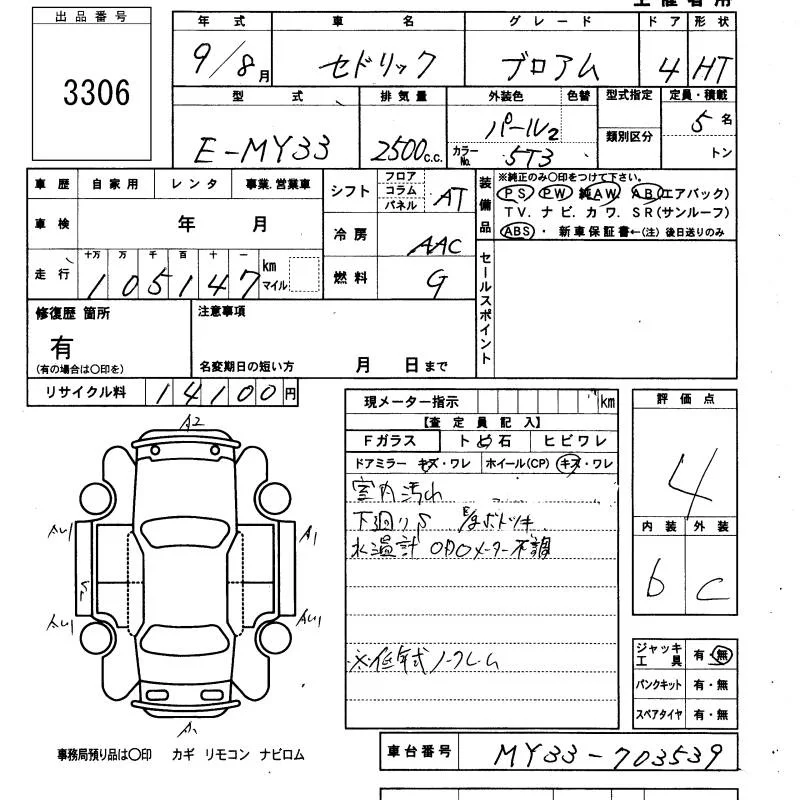 出品番号
3306
年式 車名 グレード ドア 形状
9/8月 セドリック ブロアム 4 HT
型式 排気量 外装色 色替 型式指定 定員・積載
E-MY33 2500c.c. パール2 類別区分 5名
カラーNo. 5T3 トン
車歴 自家用 レンタ 事業.営業車
車検 年 月
走行 十万 万 千 百 十 一 km マイル
105147
シフト フロア コラム パネル AT
冷房 AAC
燃料 G
装備品 ※純正のみ〇印をつけて下さい。
PS PW 純AW. AB(エアバック)
TV. ナビ. カワ. SR(サンルーフ)
ABS・ 新車保証書←(注) 後日送りのみ
セールスポイント
修復歴 箇所
有
(有の場合は〇印を)
注意事項
名変期日の短い方 月 日まで
リサイクル料 14100円
現メーター指示 km
【査定員記入】
Fガラス ト石 ヒビワレ
ドアミラー キズ・ワレ ホイール(CP) キズ・ワレ
室内汚れ
下廻りS
水温計 ODOメーター不調
※低年式ノークレーム
評価点
4
内装 外装
b C
ジャッキ工具 有・無
パンクキット 有・無
スペアタイヤ 有・無
A2
A1
AU1
AU1
AU1
事務局預り品は〇印 カギ リモコン ナビロム
車台番号 MY33-703539